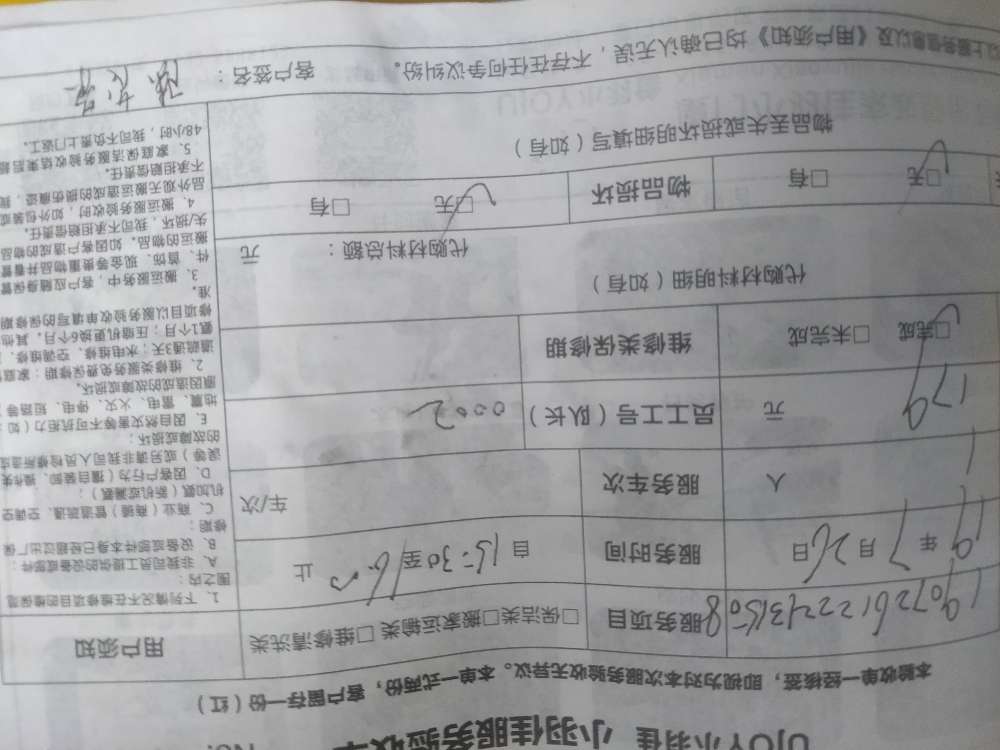 UJOY小羽佳 小羽佳服务验收单 NO.
本验收单一经核签，即视为对本次服务验收无异议。本单一式两份，客户留存一份（红）
服务项目 □保洁类□搬家运输类 □维修清洗类 用户须知
19年7月26日 服务时间 自15:30至 止
1人 服务车次 车/次
179元 员工工号（队长） 0002
□完成 □未完成 维修类保修期
代购材料明细（如有）
代购材料总额： 元
□无 □有 物品损坏 □无 □有
物品丢失或损坏明细填写（如有）
以上服务信息以及《用户须知》均已确认无误，不存在任何争议纠纷。 客户签名：
1、下列情况不在维修项目的维保范
围之内：
A、非我司员工提供的设备或部件；
B、设备或部件本身已经超过出厂保
修期；
C、商业（商铺）管道疏通、空调空
机加氨（新机或漏氨）；
D、因客户行为（擅自装卸、操作失
误等）或另请非我司人员检修所造成
的故障或损坏；
E、因自然灾害等不可抗力（如：
地震、雷电、火灾、停电、短路等）
原因造成的故障或损坏。
2、维修类服务免费保修期：家庭
道疏通3天；水电维修、空调维修、
氨1个月；压缩机更换6个月，其他
修项目以服务验收单填写的保修期
准。
3、搬运服务中，客户应随身保管
件、首饰、现金等贵重物品并看管
搬运的物品，如因客户造成的物品
失/损坏，我司不承担赔偿责任。
4、搬运服务验收时，如外包装或
品外观无搬运造成的损伤痕迹，我
不承担赔偿责任。
5、家庭保洁服务验收结束后超
48小时，我司不负责上门返工。